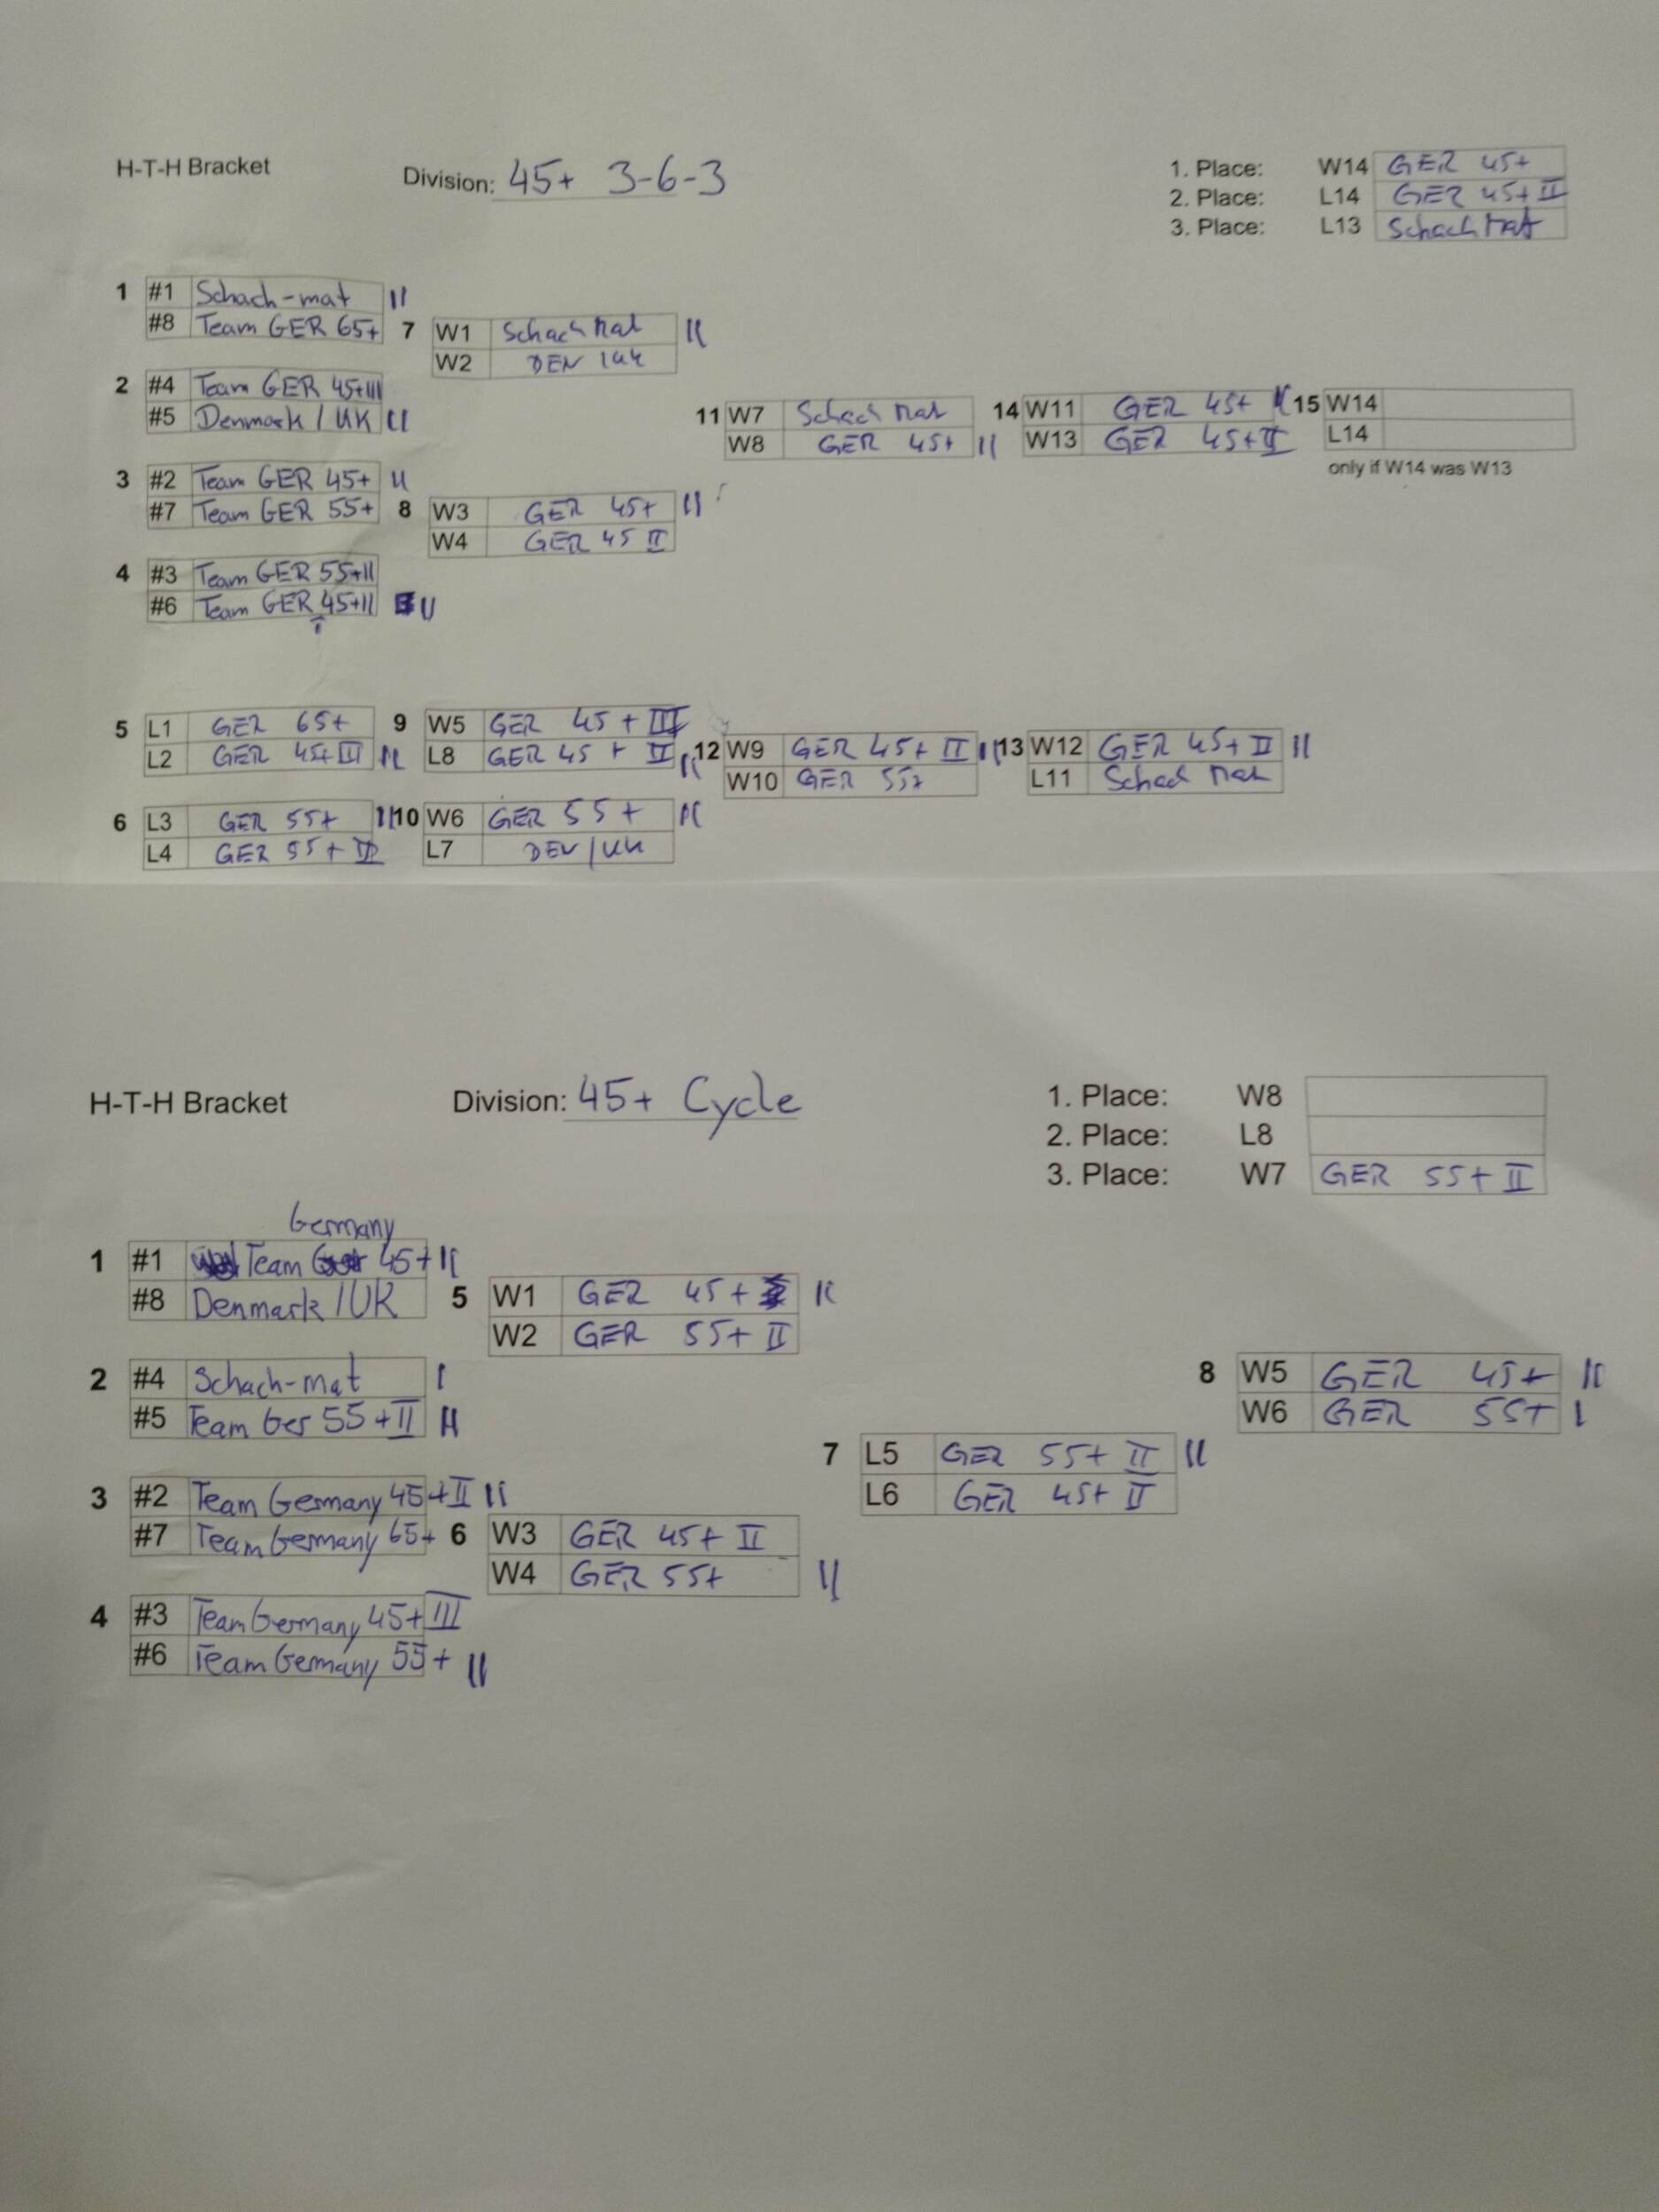 H-T-H Bracket Division: 45+ 3-6-3
1. Place: W14 GER 45+
2. Place: L14 GER 45+ II
3. Place: L13 Schach Mat
1 #1 Schach-mat II
#8 Team GER 65+
7 W1 Schach Mat II
W2 DEN / UK
2 #4 Team GER 45+III
#5 Denmark / UK II
11 W7 Schach Mat
W8 GER 45+ II
14 W11 GER 45+ II
W13 GER 45+ II
15 W14
L14
only if W14 was W13
3 #2 Team GER 45+ II
#7 Team GER 55+
8 W3 GER 45+ II
W4 GER 45 II
4 #3 Team GER 55+II
#6 Team GER 45+II II
5 L1 GER 65+
L2 GER 45+ III II
9 W5 GER 45 + III
L8 GER 45 + II II
12 W9 GER 45+ II II
W10 GER 55+
13 W12 GER 45+ II II
L11 Schach Mat
6 L3 GER 55+ II
L4 GER 55 + II
10 W6 GER 55 + II
L7 DEN / UK
H-T-H Bracket Division: 45+ Cycle
1. Place: W8
2. Place: L8
3. Place: W7 GER 55+ II
Germany
1 #1 Team 45+ II
#8 Denmark / UK
5 W1 GER 45+ II
W2 GER 55+ II
2 #4 Schach-mat I
#5 Team Ger 55+II II
8 W5 GER 45+ II
W6 GER 55+ I
7 L5 GER 55+ II II
L6 GER 45+ II
3 #2 Team Germany 45+II II
#7 Team Germany 65+
6 W3 GER 45+ II
W4 GER 55+ II
4 #3 Team Germany 45+III
#6 Team Germany 55+ II